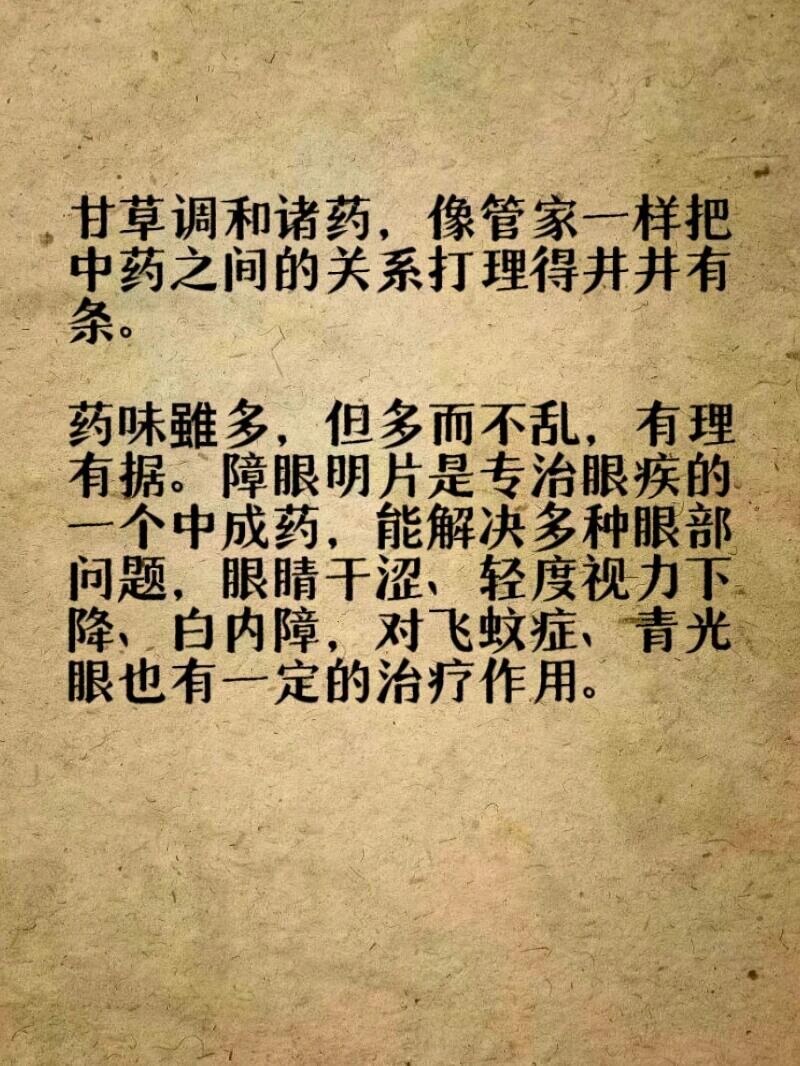 甘草调和诸药，像管家一样把
中药之间的关系打理得井井有
条。
药味雖多，但多而不乱，有理
有据。障眼明片是专治眼疾的
一个中成药，能解决多种眼部
问题，眼睛干涩、轻度视力下
降、白内障，对飞蚊症、青光
眼也有一定的治疗作用。